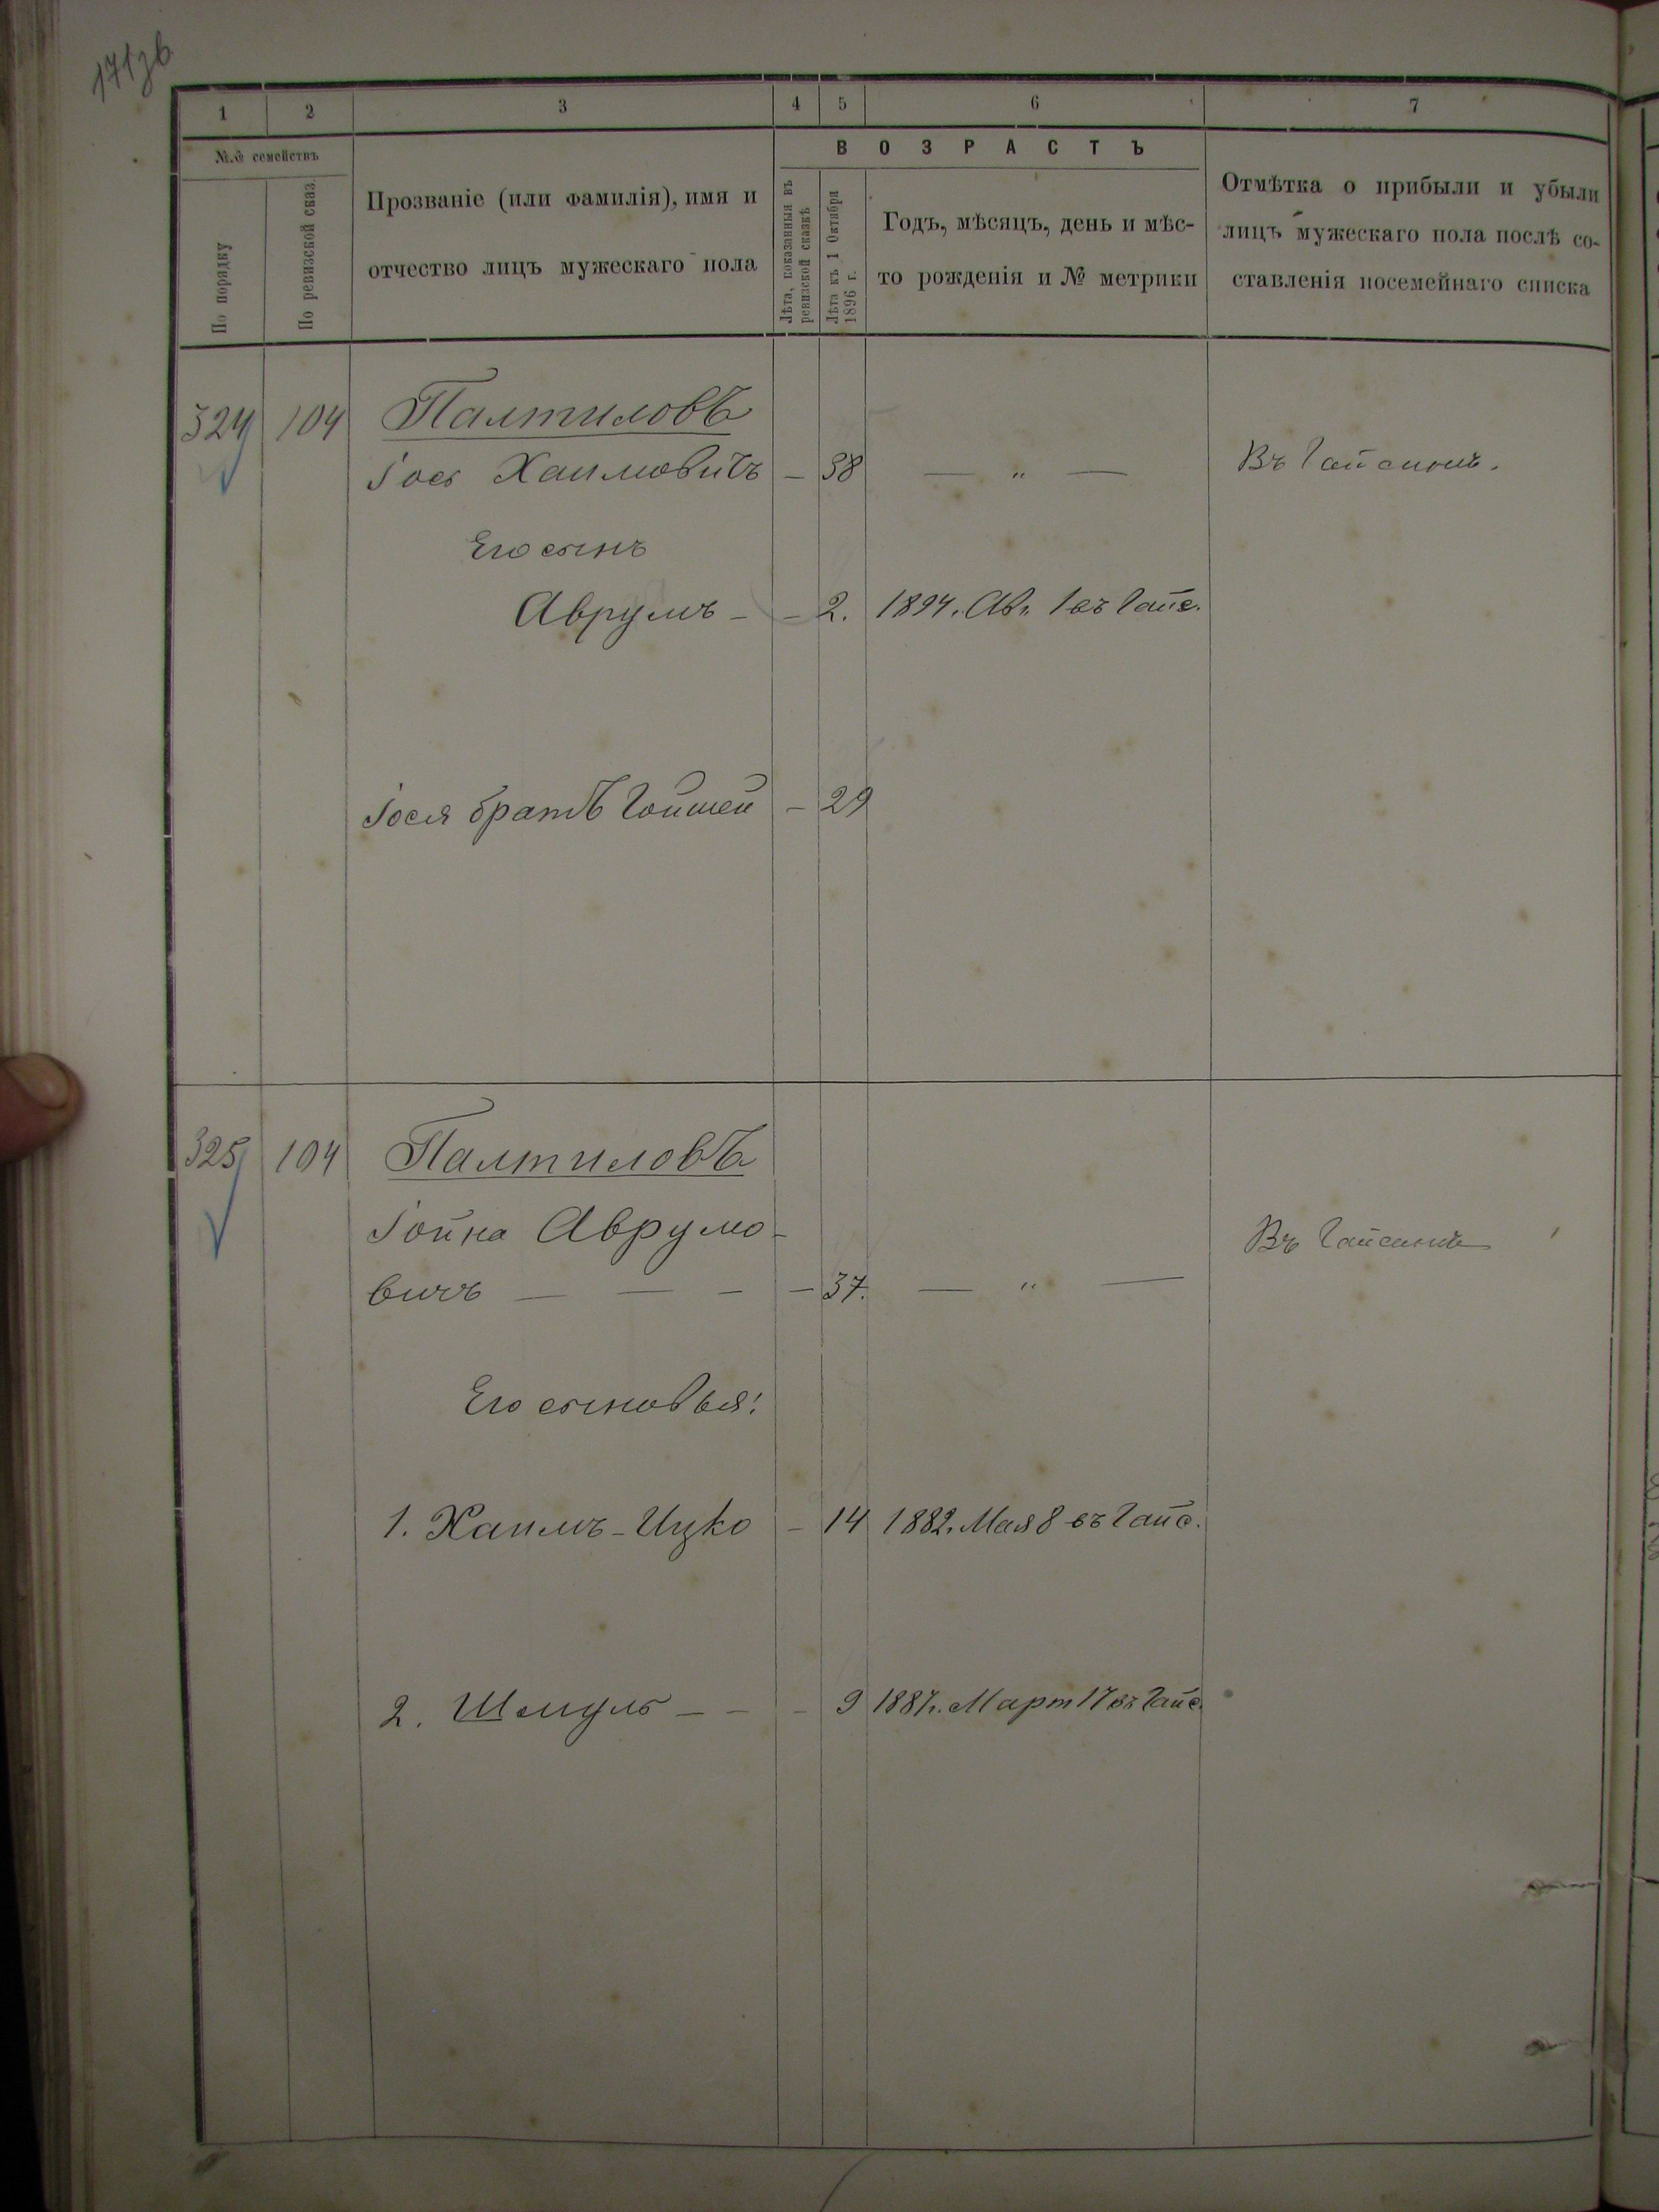 171зв
1 2 3 4 5 6 7
№№ семействъ
По порядку
По ревизской сказ.
Прозваніе (или фамилія), имя и
отчество лицъ мужескаго пола
ВОЗРАСТЪ
Лѣта, показанныя въ
ревизской сказкѣ
Лѣта къ 1 Октября
1896 г.
Годъ, мѣсяцъ, день и мѣс-
то рожденія и № метрики
Отмѣтка о прибыли и убыли
лицъ мужескаго пола послѣ со-
ставленія посемейнаго списка
324 104 Палтиловъ
Іось Хаимовичъ — 38 — „ — Въ Гайсинѣ.
Его сынъ
Аврумъ — — 2. 1894. Ав. 1 въ Гайс.
Іося братъ — 29
325 104 Палтиловъ
Іойна Аврумо-
вичъ — — — — 37. — „ — Въ Гайсинѣ
Его сыновья:
1. Хаимъ-Ицко — 14 1882. Мая 8 въ Гайс.
2. Шмуль — — — 9 1887. Март 17 въ Гайс.